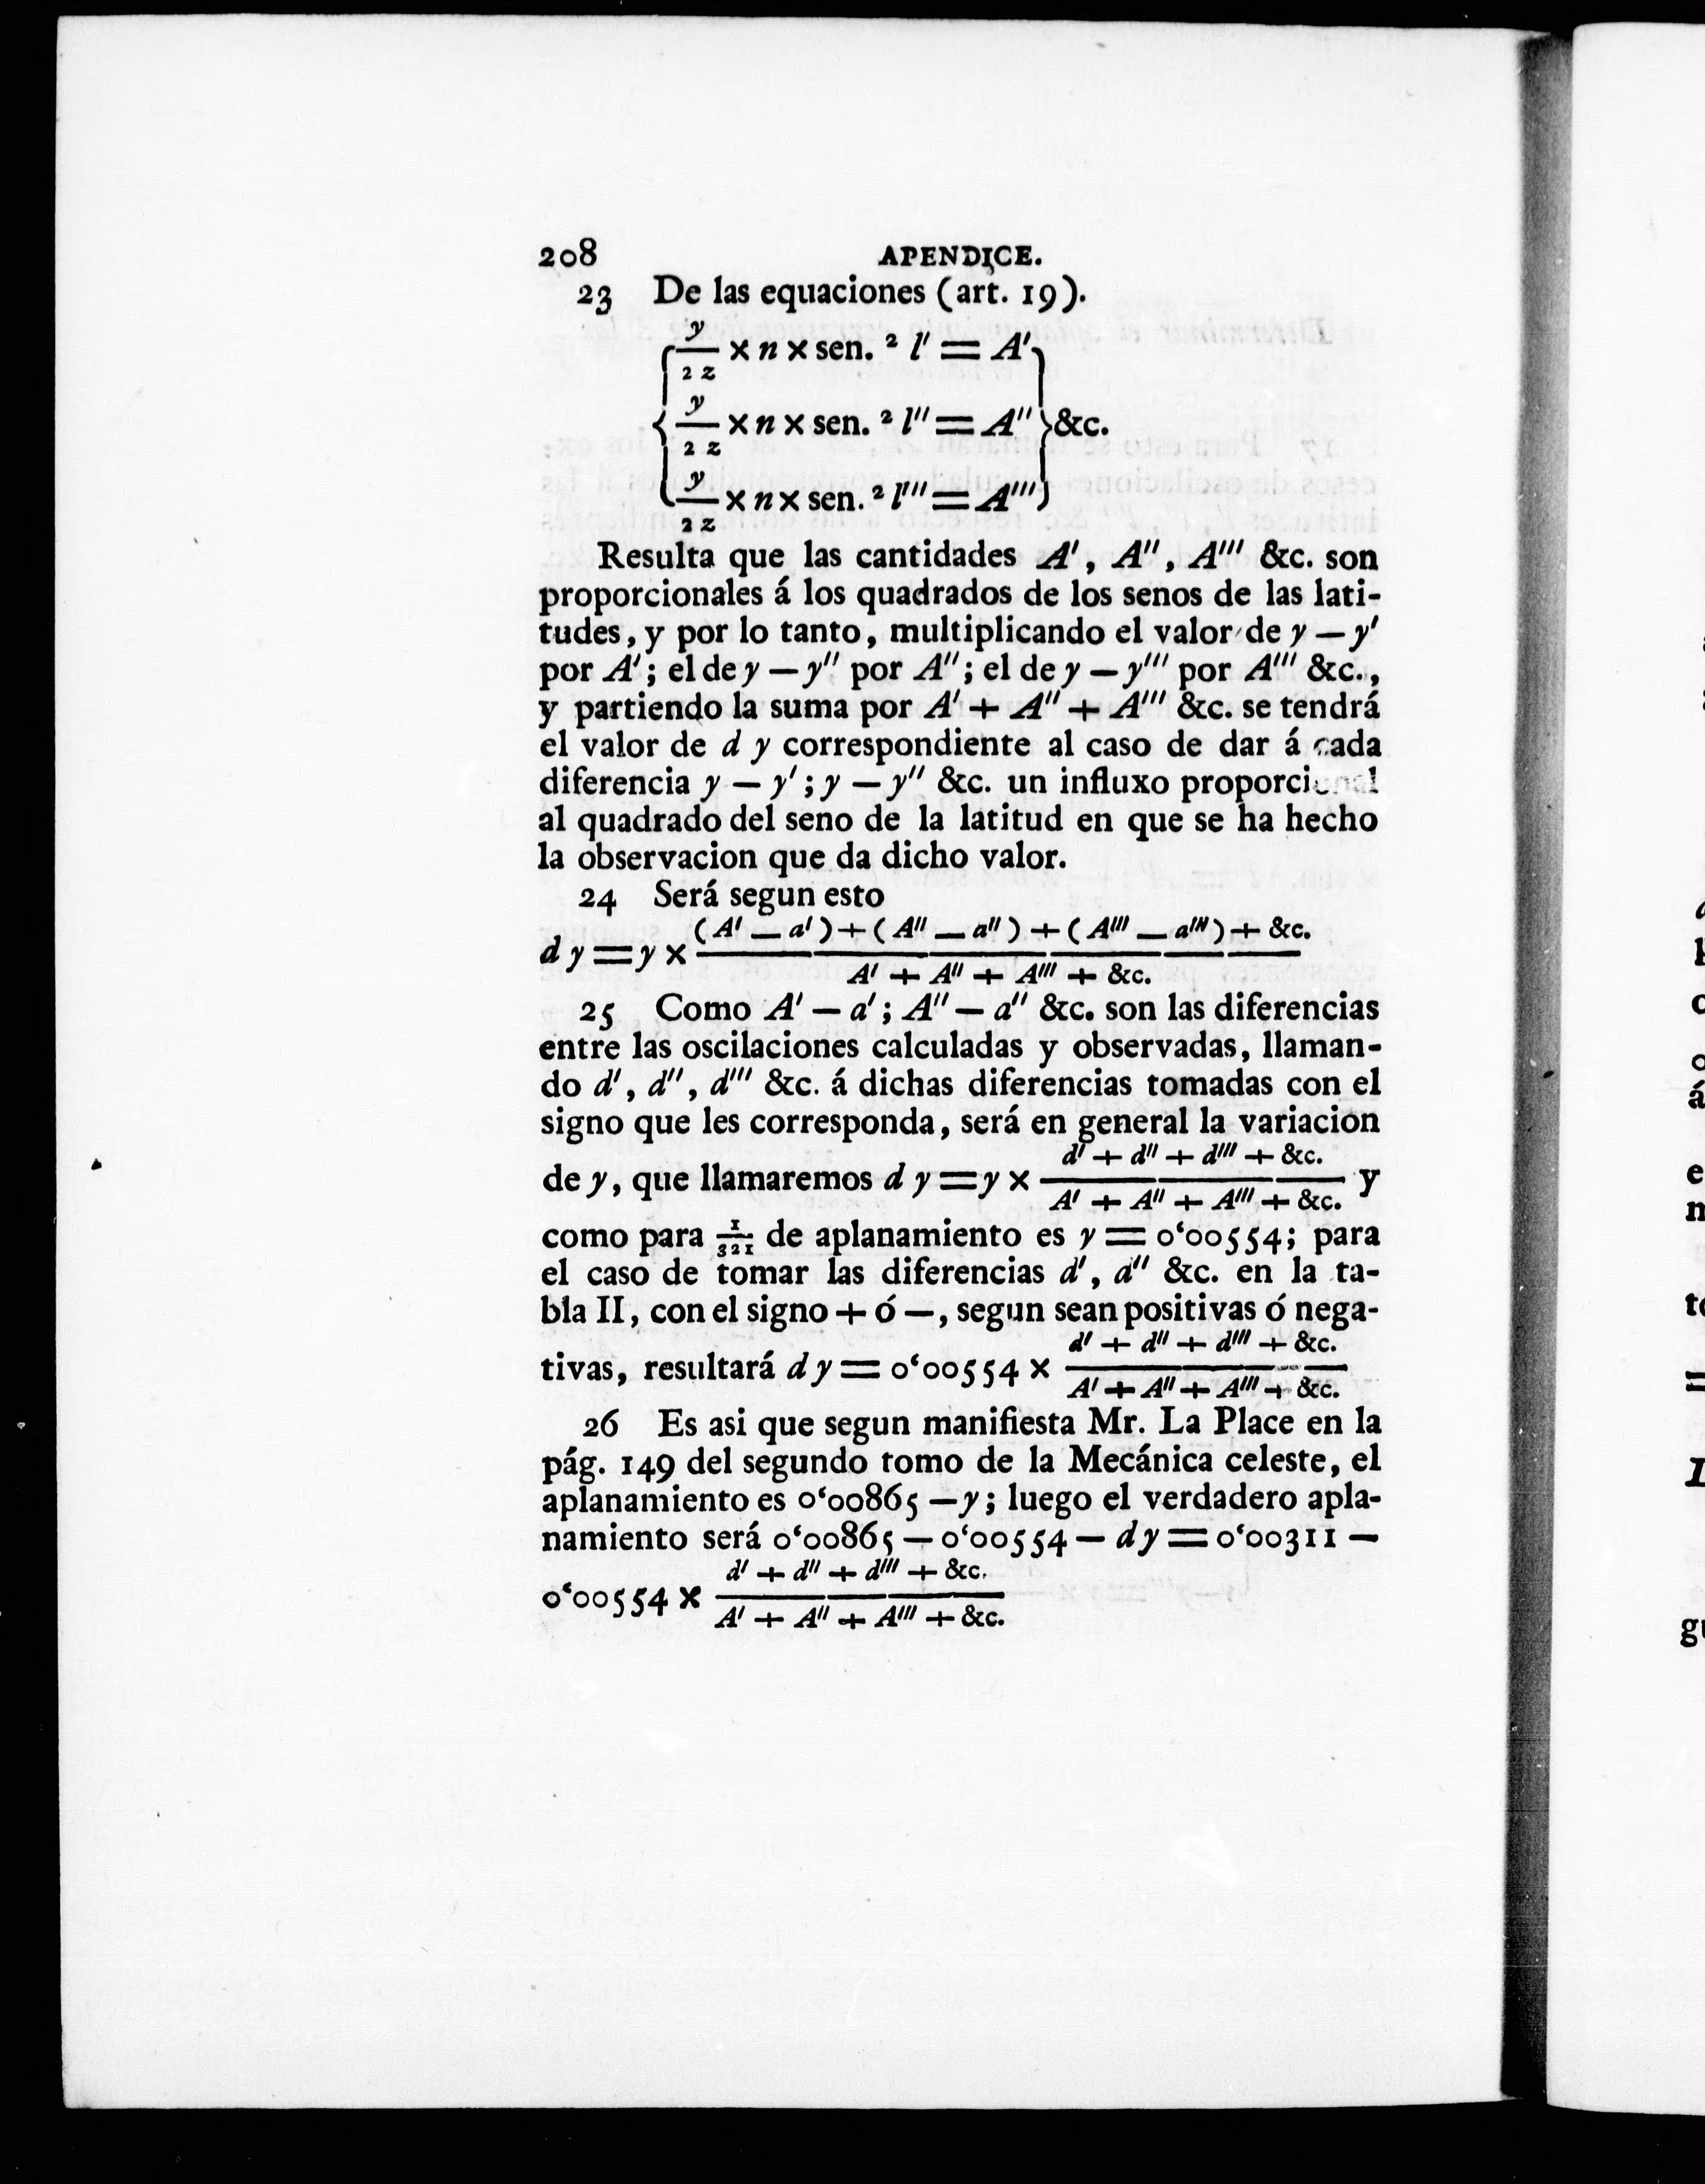 208 APENDICE.
23 De las equaciones (art. 19).
y/2z × n × sen. ² l′ = A′
y/2z × n × sen. ² l″ = A″ &c.
y/2z × n × sen. ² l‴ = A‴
Resulta que las cantidades A′, A″, A‴ &c. son
proporcionales á los quadrados de los senos de las lati-
tudes, y por lo tanto, multiplicando el valor de y — y′
por A′; el de y — y″ por A″; el de y — y‴ por A‴ &c.,
y partiendo la suma por A′ + A″ + A‴ &c. se tendrá
el valor de d y correspondiente al caso de dar á cada
diferencia y — y′; y — y″ &c. un influxo proporcional
al quadrado del seno de la latitud en que se ha hecho
la observacion que da dicho valor.
24 Será segun esto
d y = y × (A′ — a′) + (A″ — a″) + (A‴ — a‴) + &c. / A′ + A″ + A‴ + &c.
25 Como A′ — a′; A″ — a″ &c. son las diferencias
entre las oscilaciones calculadas y observadas, llaman-
do d′, d″, d‴ &c. á dichas diferencias tomadas con el
signo que les corresponda, será en general la variacion
de y, que llamaremos d y = y × d′ + d″ + d‴ + &c. / A′ + A″ + A‴ + &c. y
como para 1/321 de aplanamiento es y = 0‘00554; para
el caso de tomar las diferencias d′, d″ &c. en la ta-
bla II, con el signo + ó —, segun sean positivas ó nega-
tivas, resultará d y = 0‘00554 × d′ + d″ + d‴ + &c. / A′ + A″ + A‴ + &c.
26 Es asi que segun manifiesta Mr. La Place en la
pág. 149 del segundo tomo de la Mecánica celeste, el
aplanamiento es 0‘00865 — y; luego el verdadero apla-
namiento será 0‘00865 — 0‘00554 — d y = 0‘00311 —
0‘00554 × d′ + d″ + d‴ + &c. / A′ + A″ + A‴ + &c.